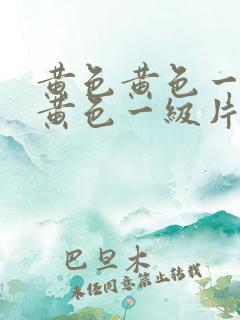 黄色黄色一
黄色一級片
巴旦木
未经同意禁止转载